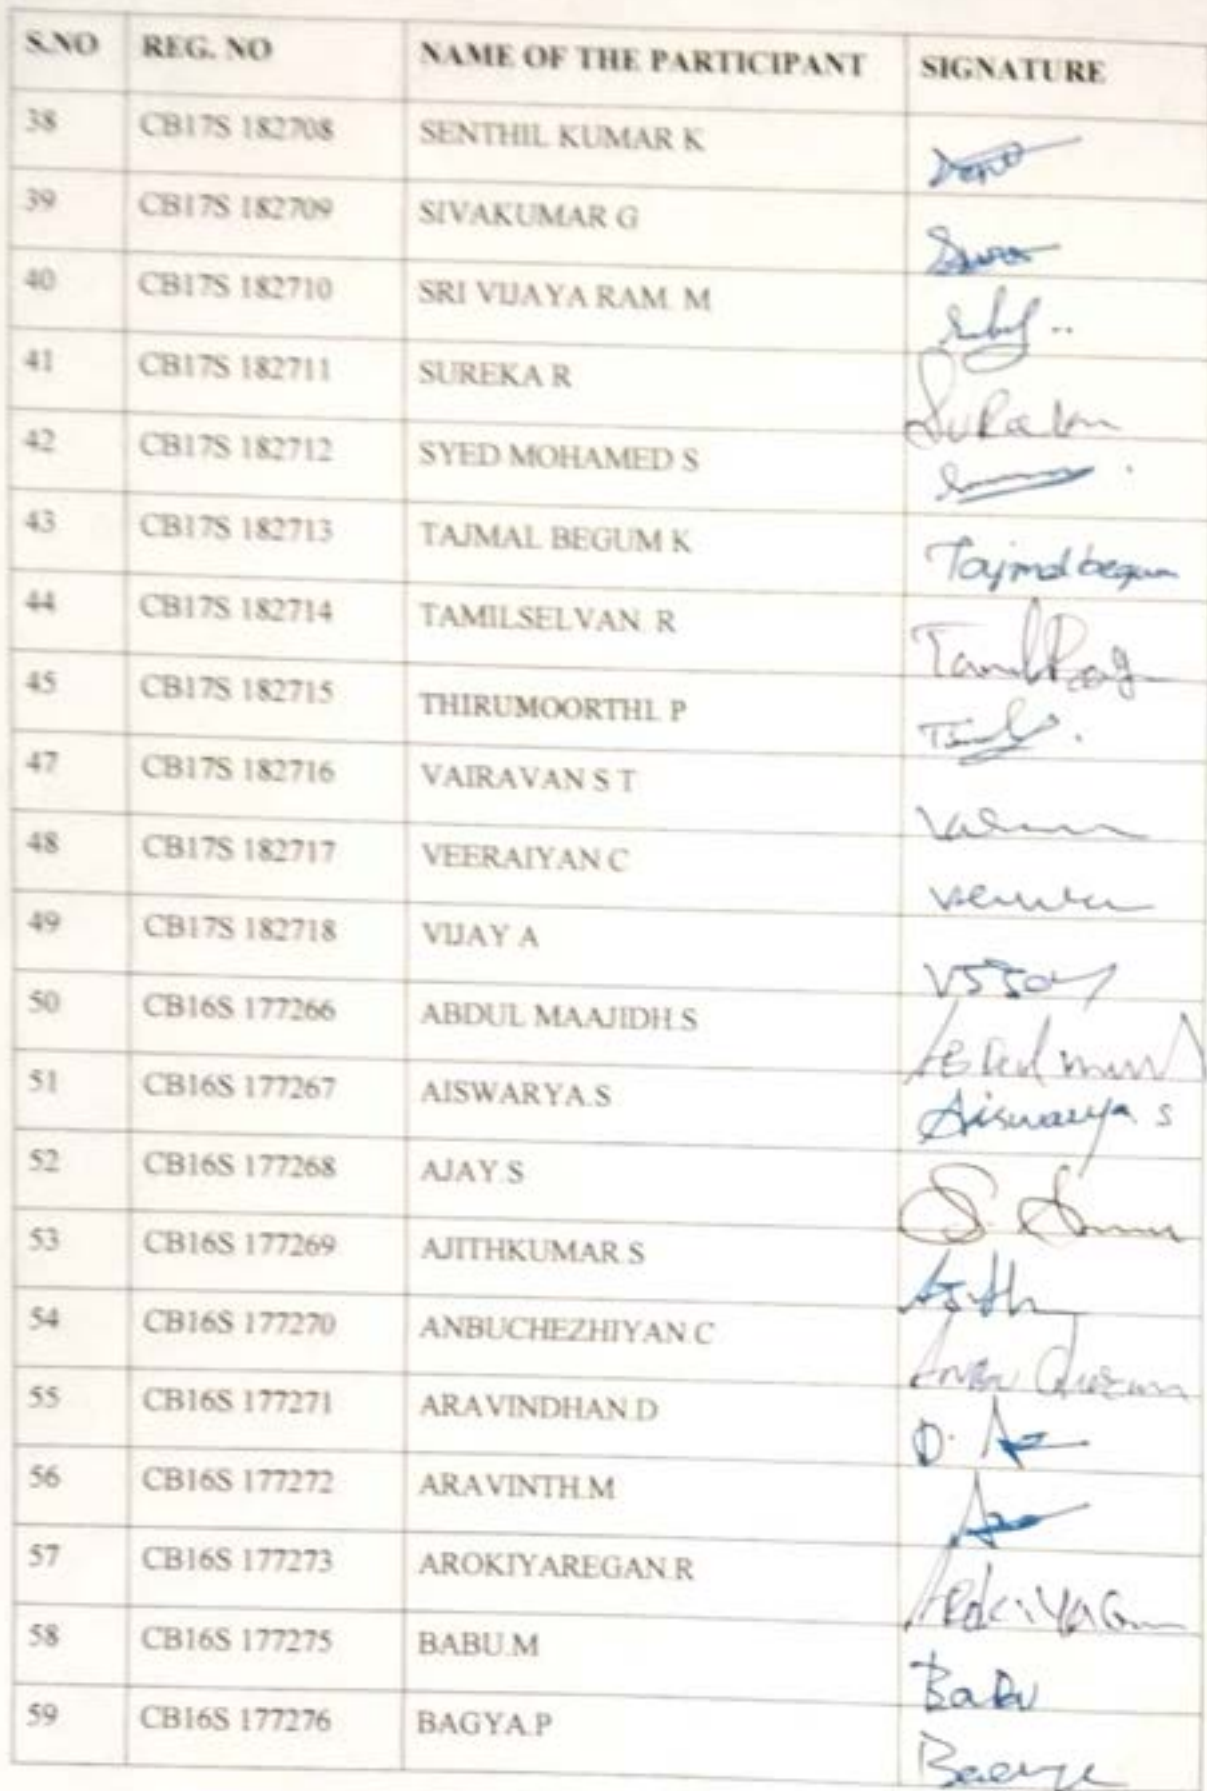 S.NO REG. NO NAME OF THE PARTICIPANT SIGNATURE
38 CB17S 182708 SENTHIL KUMAR K
39 CB17S 182709 SIVAKUMAR G
40 CB17S 182710 SRI VIJAYA RAM. M
41 CB17S 182711 SUREKA R
42 CB17S 182712 SYED MOHAMED S
43 CB17S 182713 TAJMAL BEGUM K Tajmal begum
44 CB17S 182714 TAMILSELVAN. R
45 CB17S 182715 THIRUMOORTHI. P
47 CB17S 182716 VAIRAVAN S T
48 CB17S 182717 VEERAIYAN C
49 CB17S 182718 VIJAY A
50 CB16S 177266 ABDUL MAAJIDH.S
51 CB16S 177267 AISWARYA.S Aiswarya s
52 CB16S 177268 AJAY.S
53 CB16S 177269 AJITHKUMAR.S
54 CB16S 177270 ANBUCHEZHIYAN.C
55 CB16S 177271 ARAVINDHAN.D
56 CB16S 177272 ARAVINTH.M
57 CB16S 177273 AROKIYAREGAN.R
58 CB16S 177275 BABU.M Babu
59 CB16S 177276 BAGYA.P